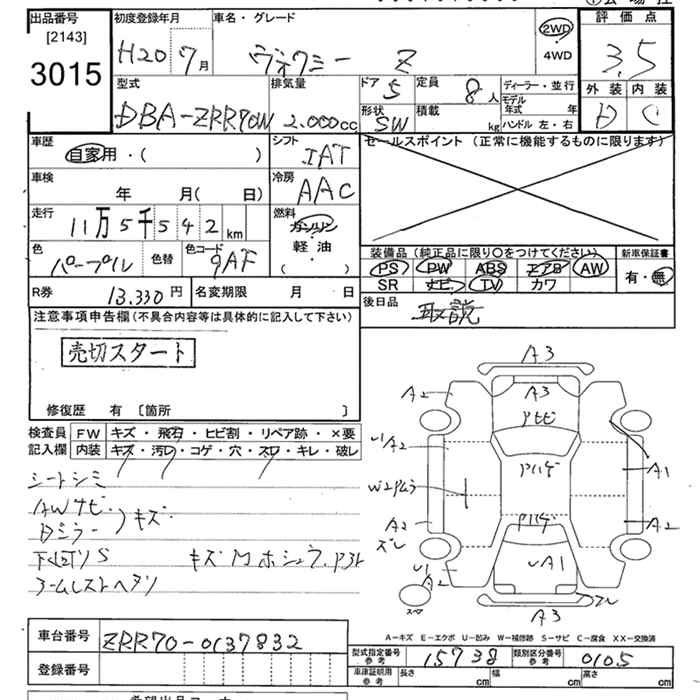 出品番号 初度登録年月 車名・グレード 評価点
[2143]
3015
H20 7月 ヴォクシー Z 2WD・4WD 3.5
型式 排気量 ドア 5 定員 8人 ディーラー・並行 外装 内装
DBA-ZRR70W 2.000cc 形状 SW 積載 kg モデル年式 年 D C
ハンドル 左・右
車歴 自家用・( ) シフト IAT セールスポイント (正常に機能するものに限ります)
車検 年 月( 日) 冷房 AAC
走行 11万5千542km 燃料 ガソリン 軽油 ( )
色 パープル 色替 色コード 9AF 装備品(純正品に限り〇をつけてください) 新車保証書
PS PW ABS エアB AW 有・無
SR ナビ TV カワ
R券 13.330円 名変期限 月 日 後日品 取説
注意事項申告欄(不具合内容等は具体的に記入して下さい)
売切スタート
修復歴 有 [箇所 ]
検査員 FW キズ・飛石・ヒビ割・リペア跡・×要
記入欄 内装 キズ・汚レ・コゲ・穴・スレ・キレ・破レ
シートシミ
AWサビ
Dミラー キズ
下回りS
アームレストヘタリ
A3
A2 A3
A2
A1
A2 A2
ズレ
A1
A2
A3
A-キズ E-エクボ U-凹み W-補修跡 S-サビ C-腐食 XX-交換済
車台番号 ZRR70-0137832
登録番号
型式指定番号 参考 15738 類別区分番号 参考 0105
車庫証明用 参考 長さ cm 幅 cm 高さ cm